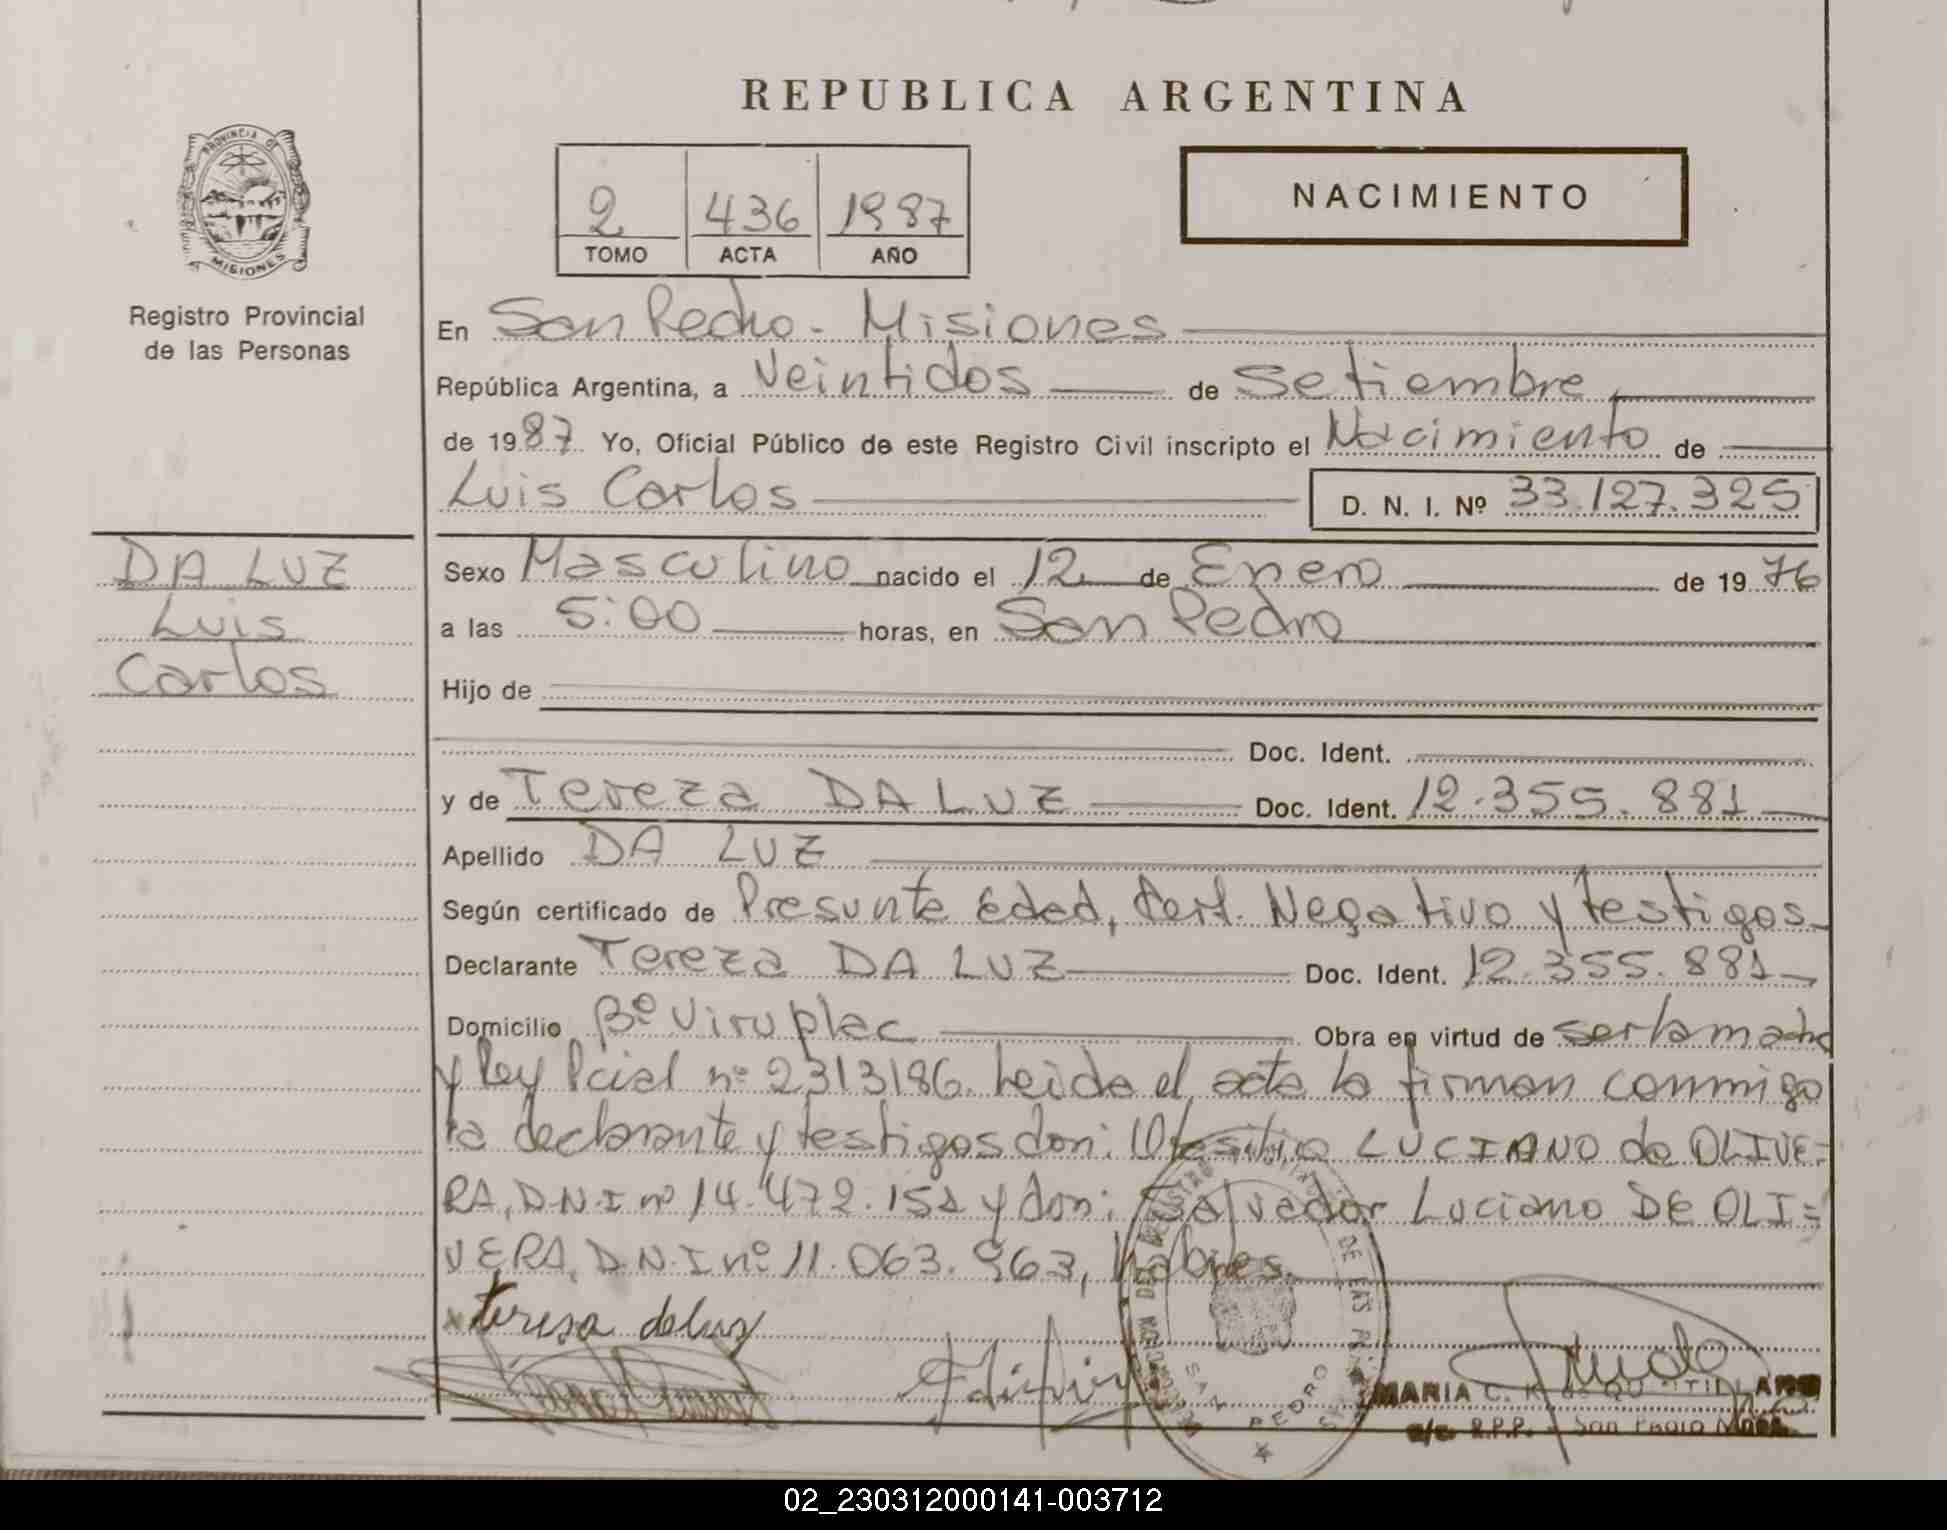 REPUBLICA ARGENTINA
PROVINCIA DE
MISIONES
Registro Provincial
de las Personas
2 436 1987
TOMO ACTA AÑO
NACIMIENTO
En San Pedro - Misiones
República Argentina, a Veintidos de Setiembre
de 1987 Yo, Oficial Público de este Registro Civil inscripto el Nacimiento de
Luis Carlos D. N. I. Nº 33.127.325
DA LUZ
Luis
Carlos
Sexo Masculino nacido el 12 de Enero de 1976
a las 5:00 horas, en San Pedro
Hijo de
Doc. Ident.
y de Tereza DA LUZ Doc. Ident. 12.355.881
Apellido DA LUZ
Según certificado de Presunta Edad, Cert. Negativo y testigos
Declarante Tereza DA LUZ Doc. Ident. 12.355.881
Domicilio Bº Viruplac Obra en virtud de ser la madre
y Ley Pcial nº 2313186. Leida el acta la firman conmigo
la declarante y testigos don: LUCIANO de OLIVE-
RA, D.N.I nº 14.472.151 y don: Salvador Luciano DE OLI=
VERA, D.N.I nº 11.063.963, habiles.
teresa deluz
SAN PEDRO
MARIA C. K. de
R.P.P. - San Pedro
02_230312000141-003712